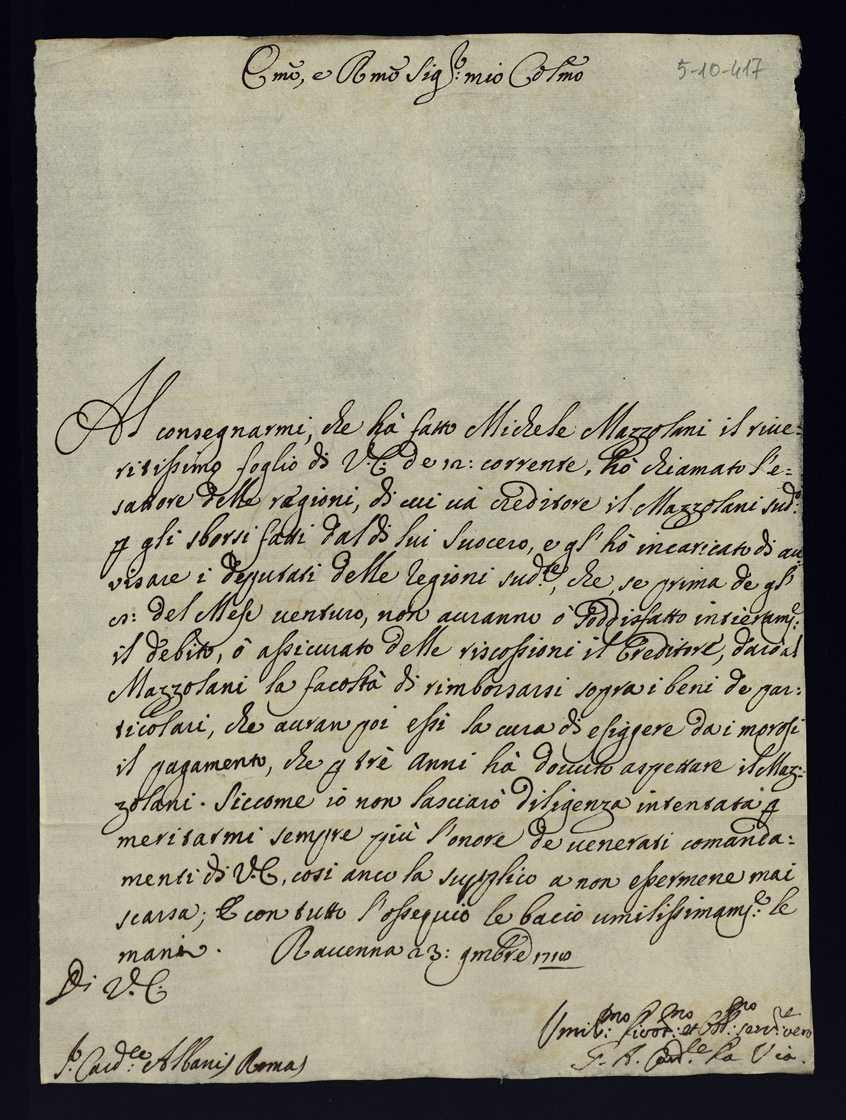 Emo, e Rmo Sigr: mio Colmo
5-10-417
Al consegnarmi, che hà fatto Michele Mazzolani il rive=
ritissimo foglio di V.E. de 12: corrente, hò chiamato l'e=
sattore delle ragioni, di cui và creditore il Mazzolani sudo:
p gli sborsi fatti dal di lui Suocero, e gl' hò incaricato di av
visare i deputati delle Regioni sudte, che, se prima de gl'
del Mese venturo, non avranno ò soddisfatto interamte:
il debito, ò assicurato delle riscossioni il Creditore, darò al
Mazzolani la facoltà di rimborsarsi sopra i beni de par=
ticolari, che avran poi essi la cura di esiggere da i morosi
il pagamento, che p trè Anni hà dovuto aspettare il Maz=
zolani. Siccome io non lasciarò diligenza intentata p
meritarmi sempre più l'onore de venerati comanda=
menti di V.E., così anco la supplico a non essermene mai
scarsa; E con tutto l'ossequio le bacio umilissimamte: le
mani. Ravenna 23: 9mbre 1718
Di V.E.
Umilmo: Divotmo: et Obbmo: servre vero
Sr. Cardle Albani Roma
F. A. Cardle La Via.